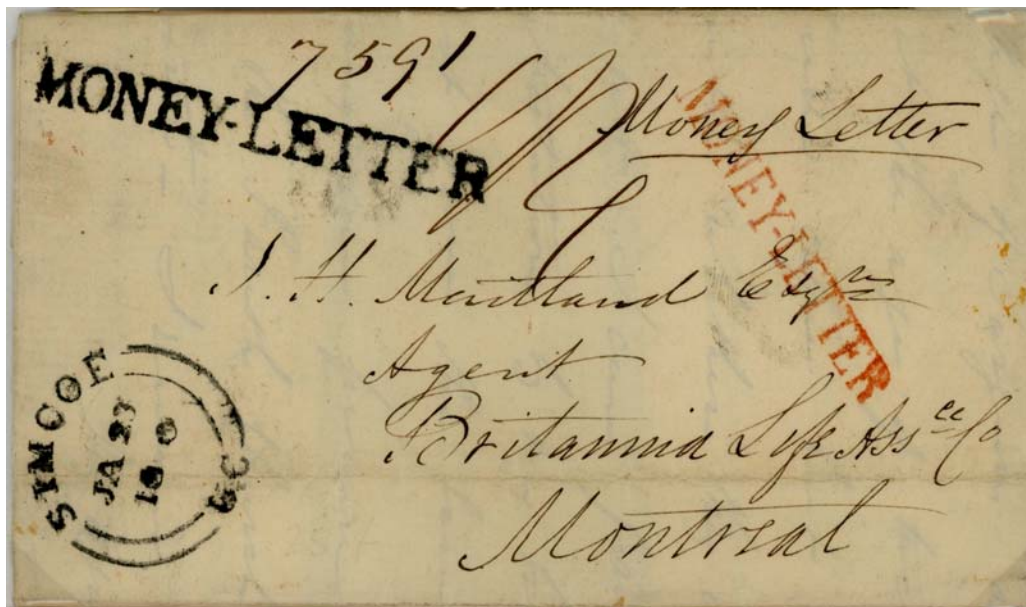 7591
MONEY-LETTER
Money Letter
MONEY-LETTER
J. H. Maitland Esqre
Agent
Britannia Life Assce Co
Montreal
SIMCOE U.C.
JA 23
18